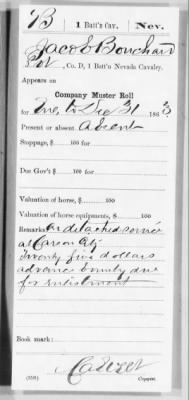 B | 1 Batt'n Cav. | Nev.
Jacob Bouchard
Pvt, Co. D, 1 Batt'n Nevada Cavalry.
Appears on
Company Muster Roll
for Nov. to Dec 31, 1863
Present or absent Absent
Stoppage, $ 100 for
Due Gov't $ 100 for
Valuation of horse, $ 100
Valuation of horse equipments, $ 100
Remarks: On detached service
at Carson City
Twenty five dollars
advance bounty due
for enlistment
Book mark:
(358) Copyist.